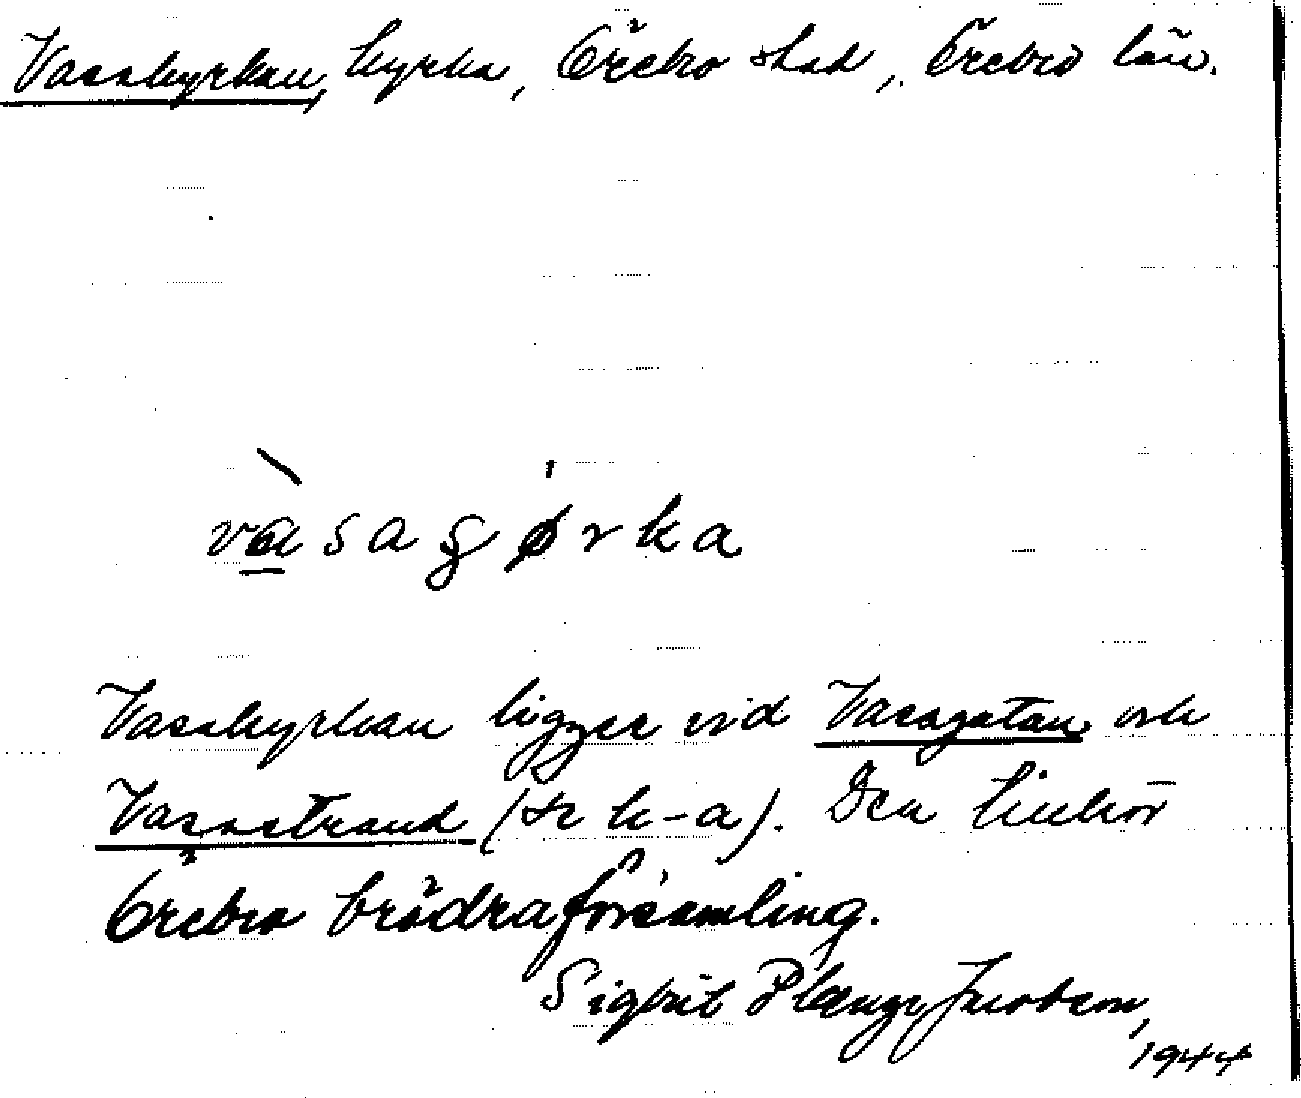 Vasakyrkan, kyrka, Örebro stad, Örebro län.
vasagørka
Vasakyrkan ligger vid Vasagatan och
Vasastrand (se k-a). Den tillhör
Örebro brödraförsamling.
Sigbrit Plænge Jacobson,
1944